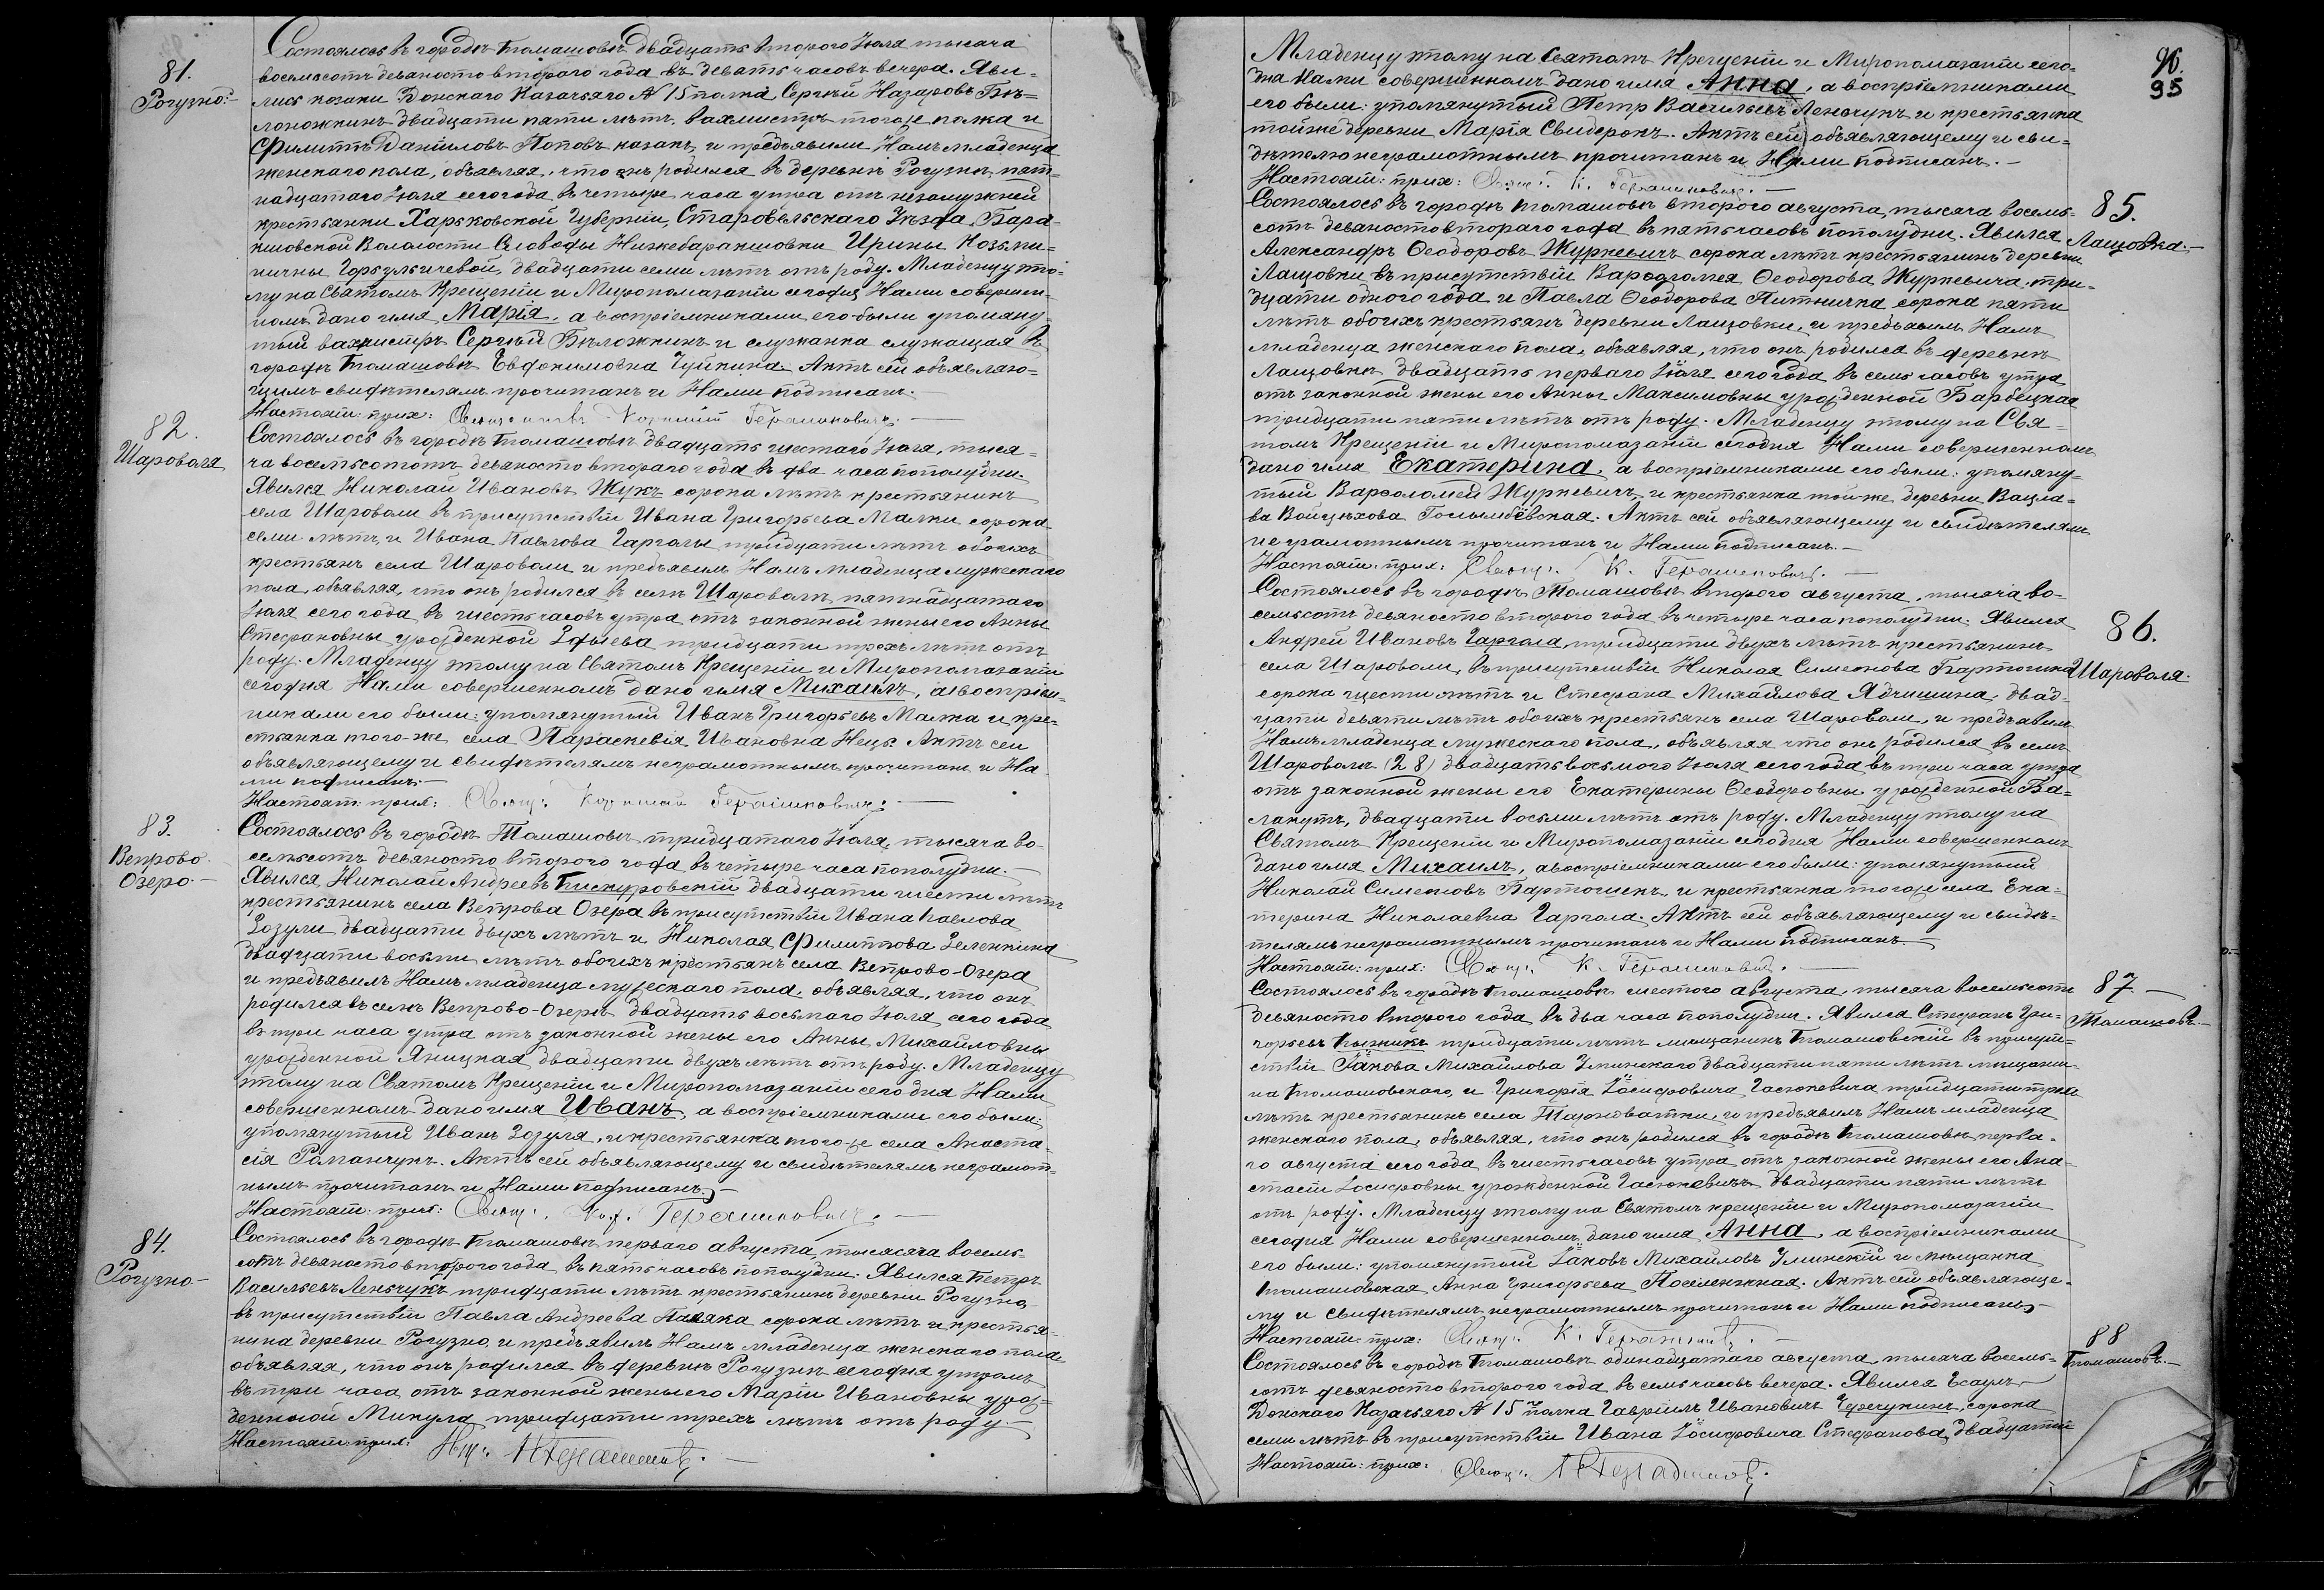 81.
Рогузно.
Состоялось въ городѣ Томашовѣ двадцать второго Іюля тысяча
восемьсотъ девяносто втораго года въ девять часовъ вечера. Яви-
лись козаки Донскаго Казачьяго № 15 полка, Сергѣй Назаровъ Бѣ-
ложкинъ двадцати пяти лѣтъ, вахмистръ тогоже полка и
Филиппъ Даниловъ Поповъ казакъ, и предъявили Намъ младенца
женскаго пола, объявляя, что онъ родился въ деревнѣ Рогузнѣ, пят-
надцатаго Іюля сего года въ четыре часа утра отъ незамужней
крестьянки Харьковской Губерніи, Старобѣльскаго Уѣзда
Волости Слободы Ирины Козьми-
ничны двадцати семи лѣтъ отъ роду. Младенцу это-
му на Святомъ Крещеніи и Миропомазаніи сегодня Нами совершен-
номъ дано имя Марія, а воспріемниками его были упомяну-
тый вахмистръ Сергѣй Бѣложкинъ и служанка служащая въ
городѣ Томашовѣ Евфимовна Чуйкина. Актъ сей объявляю-
щимъ свидѣтелямъ прочитанъ и Нами подписанъ.
Настоят: прих: Священникъ Корнилій Герашиковичъ.
82.
Шароволя
Состоялось въ городѣ Томашовѣ двадцать шестаго Іюля, тыся-
ча восемьсототъ девяносто втораго года въ два часа пополудни.
Явился Николай Ивановъ Жукъ сорока лѣтъ крестьянинъ
села Шароволи въ присутствіи Ивана Григорьева Малки сорока
семи лѣтъ, и Ивана Павлова Гарголы тридцати лѣтъ обоихъ
крестьянъ села Шароволи и предъявилъ Намъ младенца мужескаго
пола, объявляя, что онъ родился въ селѣ Шароволѣ, пятнадцатаго
Іюля сего года въ шесть часовъ утра отъ законной жены его Анны
Стефановны урожденной тридцати трехъ лѣтъ отъ
роду. Младенцу этому на Святомъ Крещеніи и Миропомазаніи
сегодня Нами совершенномъ дано имя Михаилъ, а воспріем-
никами его были: упомянутый Иванъ Григорьевъ Малка и кре-
стьянка того-же села Параскевія Ивановна Нецъ. Актъ сей
объявляющему и свидѣтелямъ неграмотнымъ прочитанъ и На-
ми подписанъ.
Настоят: прих: Свящ: Корнилій Герашиковичъ.
83.
Вепрово
Озеро.
Состоялось въ городѣ Томашовѣ тридцатаго Іюля, тысяча во-
семьсотъ девяносто второго года въ четыре часа пополудни.
Явился Николай Андреевъ Пискуровскій двадцати шести лѣтъ
крестьянинъ села Вепрова Озера въ присутствіи Ивана Павлова
Зозули двадцати двухъ лѣтъ и Николая Филиппова
двадцати восьми лѣтъ обоихъ крестьянъ села Вепрово-Озера
и предъявилъ Намъ младенца мужескаго пола, объявляя, что онъ
родился въ селѣ Вепрово-Озерѣ двадцать восьмаго Іюля сего года
въ три часа утра отъ законной жены его Анны Михайловны
урожденной Яницкая двадцати двухъ лѣтъ отъ роду. Младенцу
этому на Святомъ Крещеніи и Миропомазаніи сегодня Нами
совершенномъ дано имя Иванъ, а воспріемниками его были:
упомянутый Иванъ Зозуля, и крестьянка того-же села Анаста-
сія Романчукъ. Актъ сей объявляющему и свидѣтелямъ неграмот-
нымъ прочитанъ и Нами подписанъ.
Настоят: прих: Свящ: Кор. Герашиковичъ.
84.
Рогузно
Состоялось въ городѣ Томашовѣ перваго августа, тысясяча восемь-
сотъ девяносто второго года въ пять часовъ пополудни. Явился Петръ
Васильевъ Леньчукъ тридцати лѣтъ крестьянинъ деревни Рогузно
въ присутствіи Павла Андреева сорока лѣтъ и крестья-
нина деревни Рогузно, и предъявилъ Намъ младенца женскаго пола
объявляя, что онъ родился въ деревнѣ Рогузнѣ сегодня утромъ
въ три часа отъ законной жены его Маріи Ивановны урож-
денной Микула тридцати трехъ лѣтъ отъ роду.
Настоят: прих: Свящ: К Герашиковичъ.
96.
95
Младенцу этому на Святомъ Крещеніи и Миропомазаніи сего-
дня Нами совершенномъ дано имя Анна, а воспріемниками
его были: упомянутый Петр Васильевъ Леньчукъ и крестьянка
тойже деревни Марія Свидеронъ. Актъ сей объявляющему и сви-
дѣтелю неграмотнымъ прочитанъ и Нами подписанъ.
Настоят: прих: Свящ: К. Герашиковичъ.
85.
Лащовка.
Состоялось въ городѣ Томашовѣ второго августа, тысяча восемь-
сотъ девяносто втораго года въ пять часовъ пополудни. Явился
Александръ Ѳеодоровъ Журкевичъ сорока лѣтъ крестьянинъ деревни
Лащовки въ присутствіи Варфоломея Ѳеодорова Журкевича три-
дцати одного года и Павла Ѳеодорова Питничка сорока пяти
лѣтъ обоихъ крестьянъ деревни Лащовки, и предъявилъ Намъ
младенца женскаго пола, объявляя, что онъ родился въ деревнѣ
Лащовкѣ двадцать перваго Іюля сего года въ семь часовъ утра
отъ законной жены его Анны Максимовны урожденной Барбецкая
тридцати пяти лѣтъ отъ роду. Младенцу этому на Свя-
томъ Крещеніи и Миропомазаніи сегодня Нами совершенномъ
дано имя Екатерина, а воспріемниками его были: упомяну-
тый Варфоломей Журкевичъ и крестьянка той-же деревни Вацла-
ва Войцѣхова Актъ сей объявляющему и свидѣтелямъ
неграмотнымъ прочитанъ и Нами подписанъ.
Настоят: прих: Свящ: К. Герашиковичъ.
86.
Шароволя.
Состоялось въ городѣ Томашовѣ второго августа, тысяча во-
семьсотъ девяносто второго года въ четыре часа пополудни. Явился
Андрей Ивановъ Гаргола, тридцати двухъ лѣтъ крестьянинъ
села Шароволи, въ присутствіи Николая Симеонова Бартошика
сорока шести лѣтъ и Стефана Михайлова Ядчишина, двад-
цати девяти лѣтъ обоихъ крестьянъ села Шароволи, и предъявилъ
Намъ младенца мужескаго пола, объявляя что онъ родился въ селѣ
Шароволѣ (28) двадцать восьмого Іюля сего года въ три часа утра
отъ законной жены его Екатерины Ѳеодоровны урожденной Ба-
лакутъ, двадцати восьми лѣтъ отъ роду. Младенцу этому на
Святомъ Крещеніи и Миропомазаніи сегодня Нами совершенномъ
дано имя Михаилъ, а воспріемниками его были: упомянутый
Николай Симеоновъ и крестьянка тогоже села Ека-
терина Николаевна Гаргола. Актъ сей объявляющему и свидѣ-
телямъ неграмотнымъ прочитанъ и Нами подписанъ.
Настоят: прих: Свящ: К. Герашиковичъ.
87.
Томашовъ.
Состоялось въ городѣ Томашовѣ шестого августа, тысяча восемьсотъ
девяносто второго года въ два часа пополудни. Явился Стефанъ Гри-
горьевъ Пыжикъ тридцати лѣтъ мѣщанинъ Томашовскій въ присут-
ствіи Іакова Михайлова Улинскаго двадцати пяти лѣтъ мѣщани-
на Томашовскаго, и Григорія Іосифовича Гасюкевича тридцати трехъ
лѣтъ крестьянинъ села Тарноватки, и предъявилъ Намъ младенца
женскаго пола, объявляя, что онъ родился въ городѣ Томашовѣ перва-
го августа сего года въ шесть часовъ утра отъ законной жены его Ана-
стасіи Іосифовны урожденной Гасюкевичъ двадцати пяти лѣтъ
отъ роду. Младенцу этому на Святомъ крещеніи и Миропомазаніи
сегодня Нами совершенномъ дано имя Анна, а воспріемниками
его были: упомянутый Іаковъ Михайловъ Улинскій и мѣщанка
Томашовская Анна Григорьева Актъ сей объявляюще-
му и свидѣтелямъ неграмотнымъ прочитанъ и Нами подписанъ
Настоят: прих: Свящ: К. Герашиковичъ.
88
Томашовъ.
Состоялось въ городѣ Томашовѣ одинадцатаго августа, тысяча восемь-
сотъ девяносто второго года въ семь часовъ вечера. Явился Есаулъ
Донскаго Казачьяго № 15 полка Гавріилъ Ивановичъ сорока
семи лѣтъ въ присутствіи Ивана Іосифовича Стефанова, двадцати
Настоят: прих: Свящ: К Герашиковичъ.